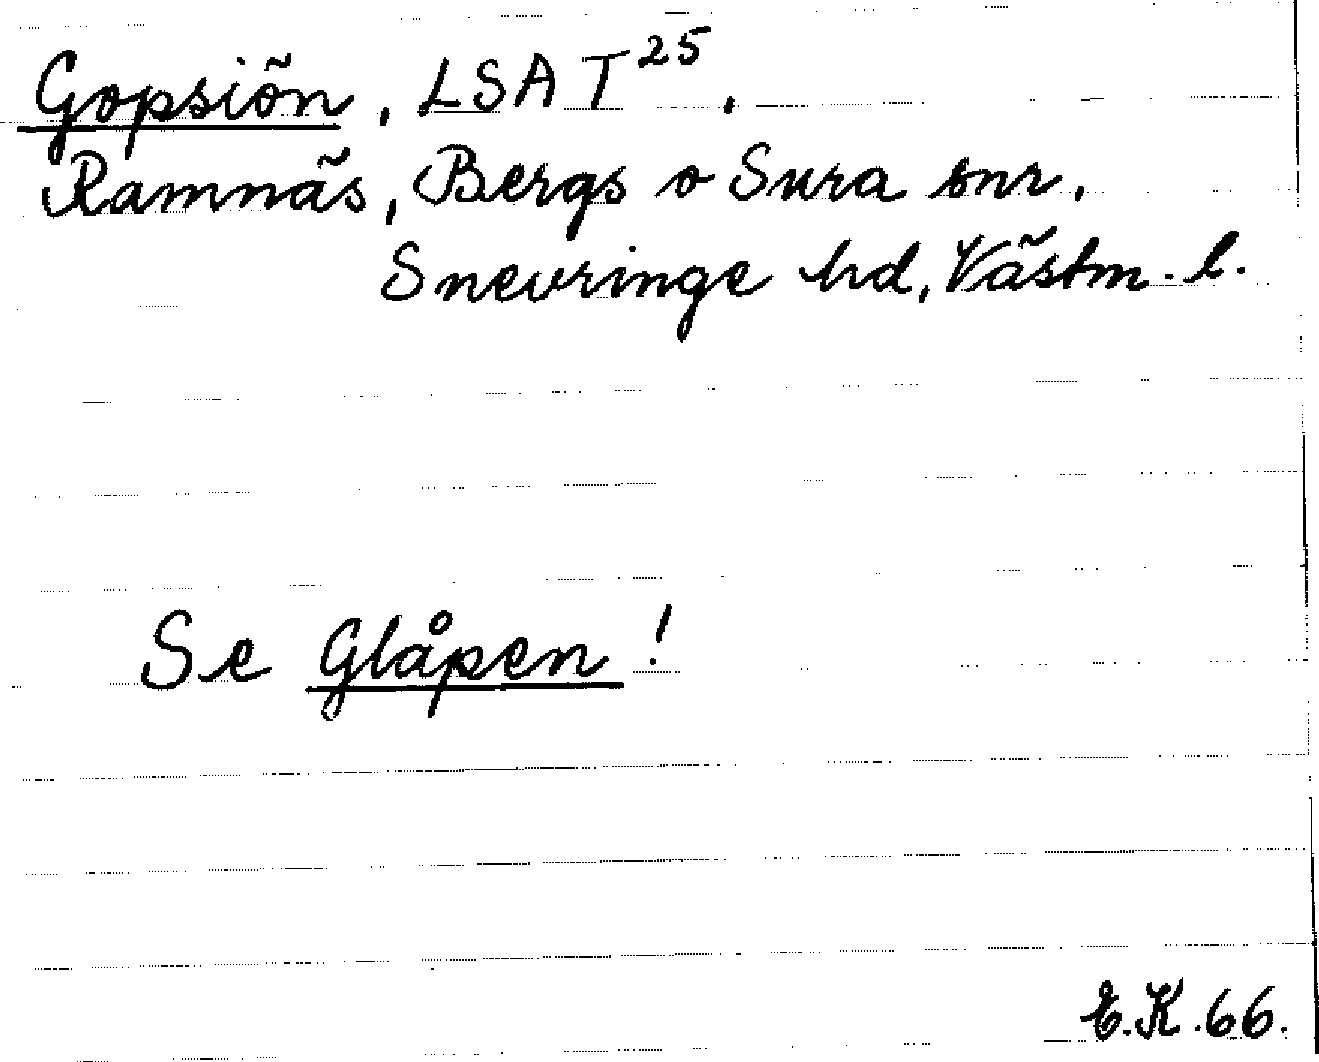 Gopsiön, LSA T25.
Ramnäs, Bergs o Sura snr,
Snevringe hd, Västm. l.
Se Glåpen!
E.K.66.